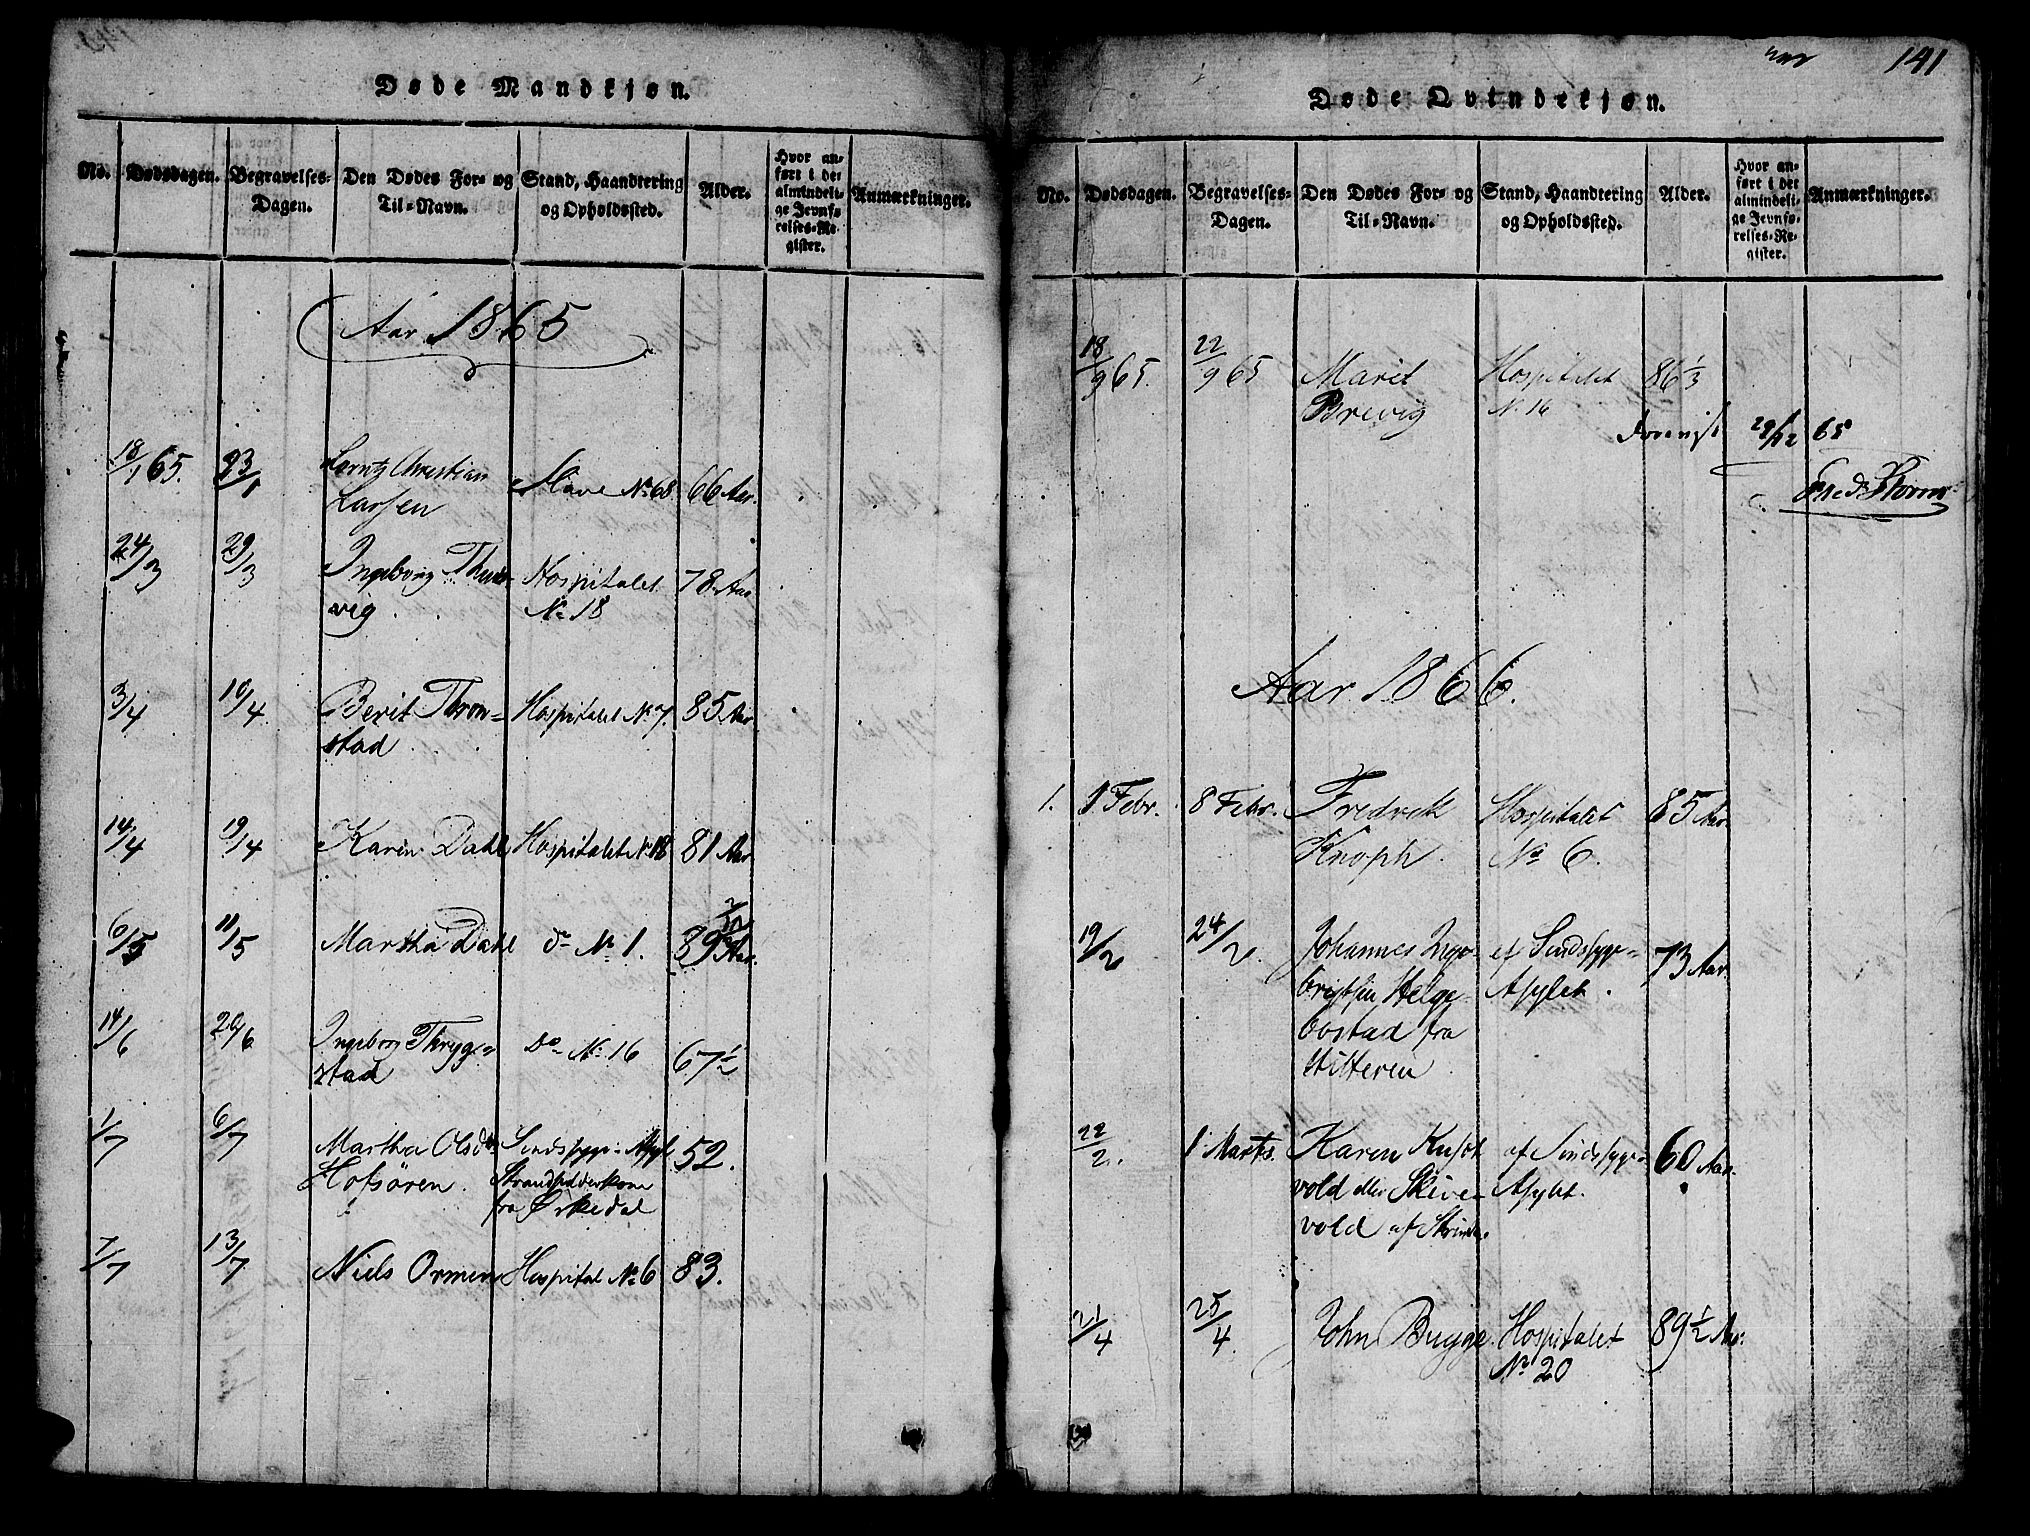 Døde Mandkjøn.
No.
Dødsdagen.
Begravelses-
Dagen.
Den Dødes For- og
Til-Navn.
Stand, Haandtering
og Opholdssted.
Alder.
Hvor an-
ført i det
almindeli-
ge Jevnfø-
relses-Re-
gister.
Anmærkninger.
Aar 1865
18/1 65. 23/1 Lorntz Christian Slave No 68 66 Aar.
Larssen
24/3 29/3 Ingeborg Hospitalet 78 Aar
vig. No 18
3/4 10/4 Berit Thron= Hospitalet No 7. 85 Aar
stad
14/4 19/4 Karen Dahl Hospitalet No 18 81 Aar
6/5 11/5 Martha Dahl do No 1. 89 Aar.
14/6 20/6 Ingeborg Thryg= Do No 16 67 1/2
stad
1/7 6/7 Martha Olsdtr Sindssyge-Asyl 52.
Hofsören. Strandsidderkone
fra Ørkedal
7/7 13/7 Niels Ormen Hospital No 6 83.
141
Døde Qvindekjøn.
No.
Dødsdagen.
Begravelses-
Dagen.
Den Dødes For- og
Til-Navn.
Stand, Haandtering
og Opholdssted.
Alder.
Hvor an-
ført i det
almindeli-
ge Jevnfø-
relses-Re-
gister.
Anmærkninger.
18/9 65. 22/9 65 Marit Hospitalet 86 1/3
Brevig No 16
29/12 65
Aar 1866.
1. 1 Febr. 8 Febr. Fredrik Hospitalet 85 Aar.
Knoph. No 6.
19/2 24/2. Johannes Inge- af Sindssyge= 73 Aar.
brigtsen Helge- Asylet.
bostad fra
Hitteren
22/2. 1 Marts. Karen Kust af Sindssyge= 60 Aar.
vold eller Skive- Asylet.
vold af
21/4 25/4. John Bugge. Hospitalet 89 1/2 Aar.
No 20